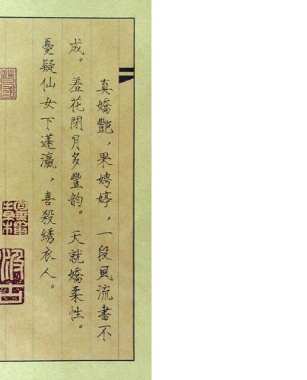 真嬌艷，果娉婷，一段風流畫不
成。羞花閉月多豐韵。天就嬌柔性。
憂疑仙女下蓬瀛，喜殺綉衣人。